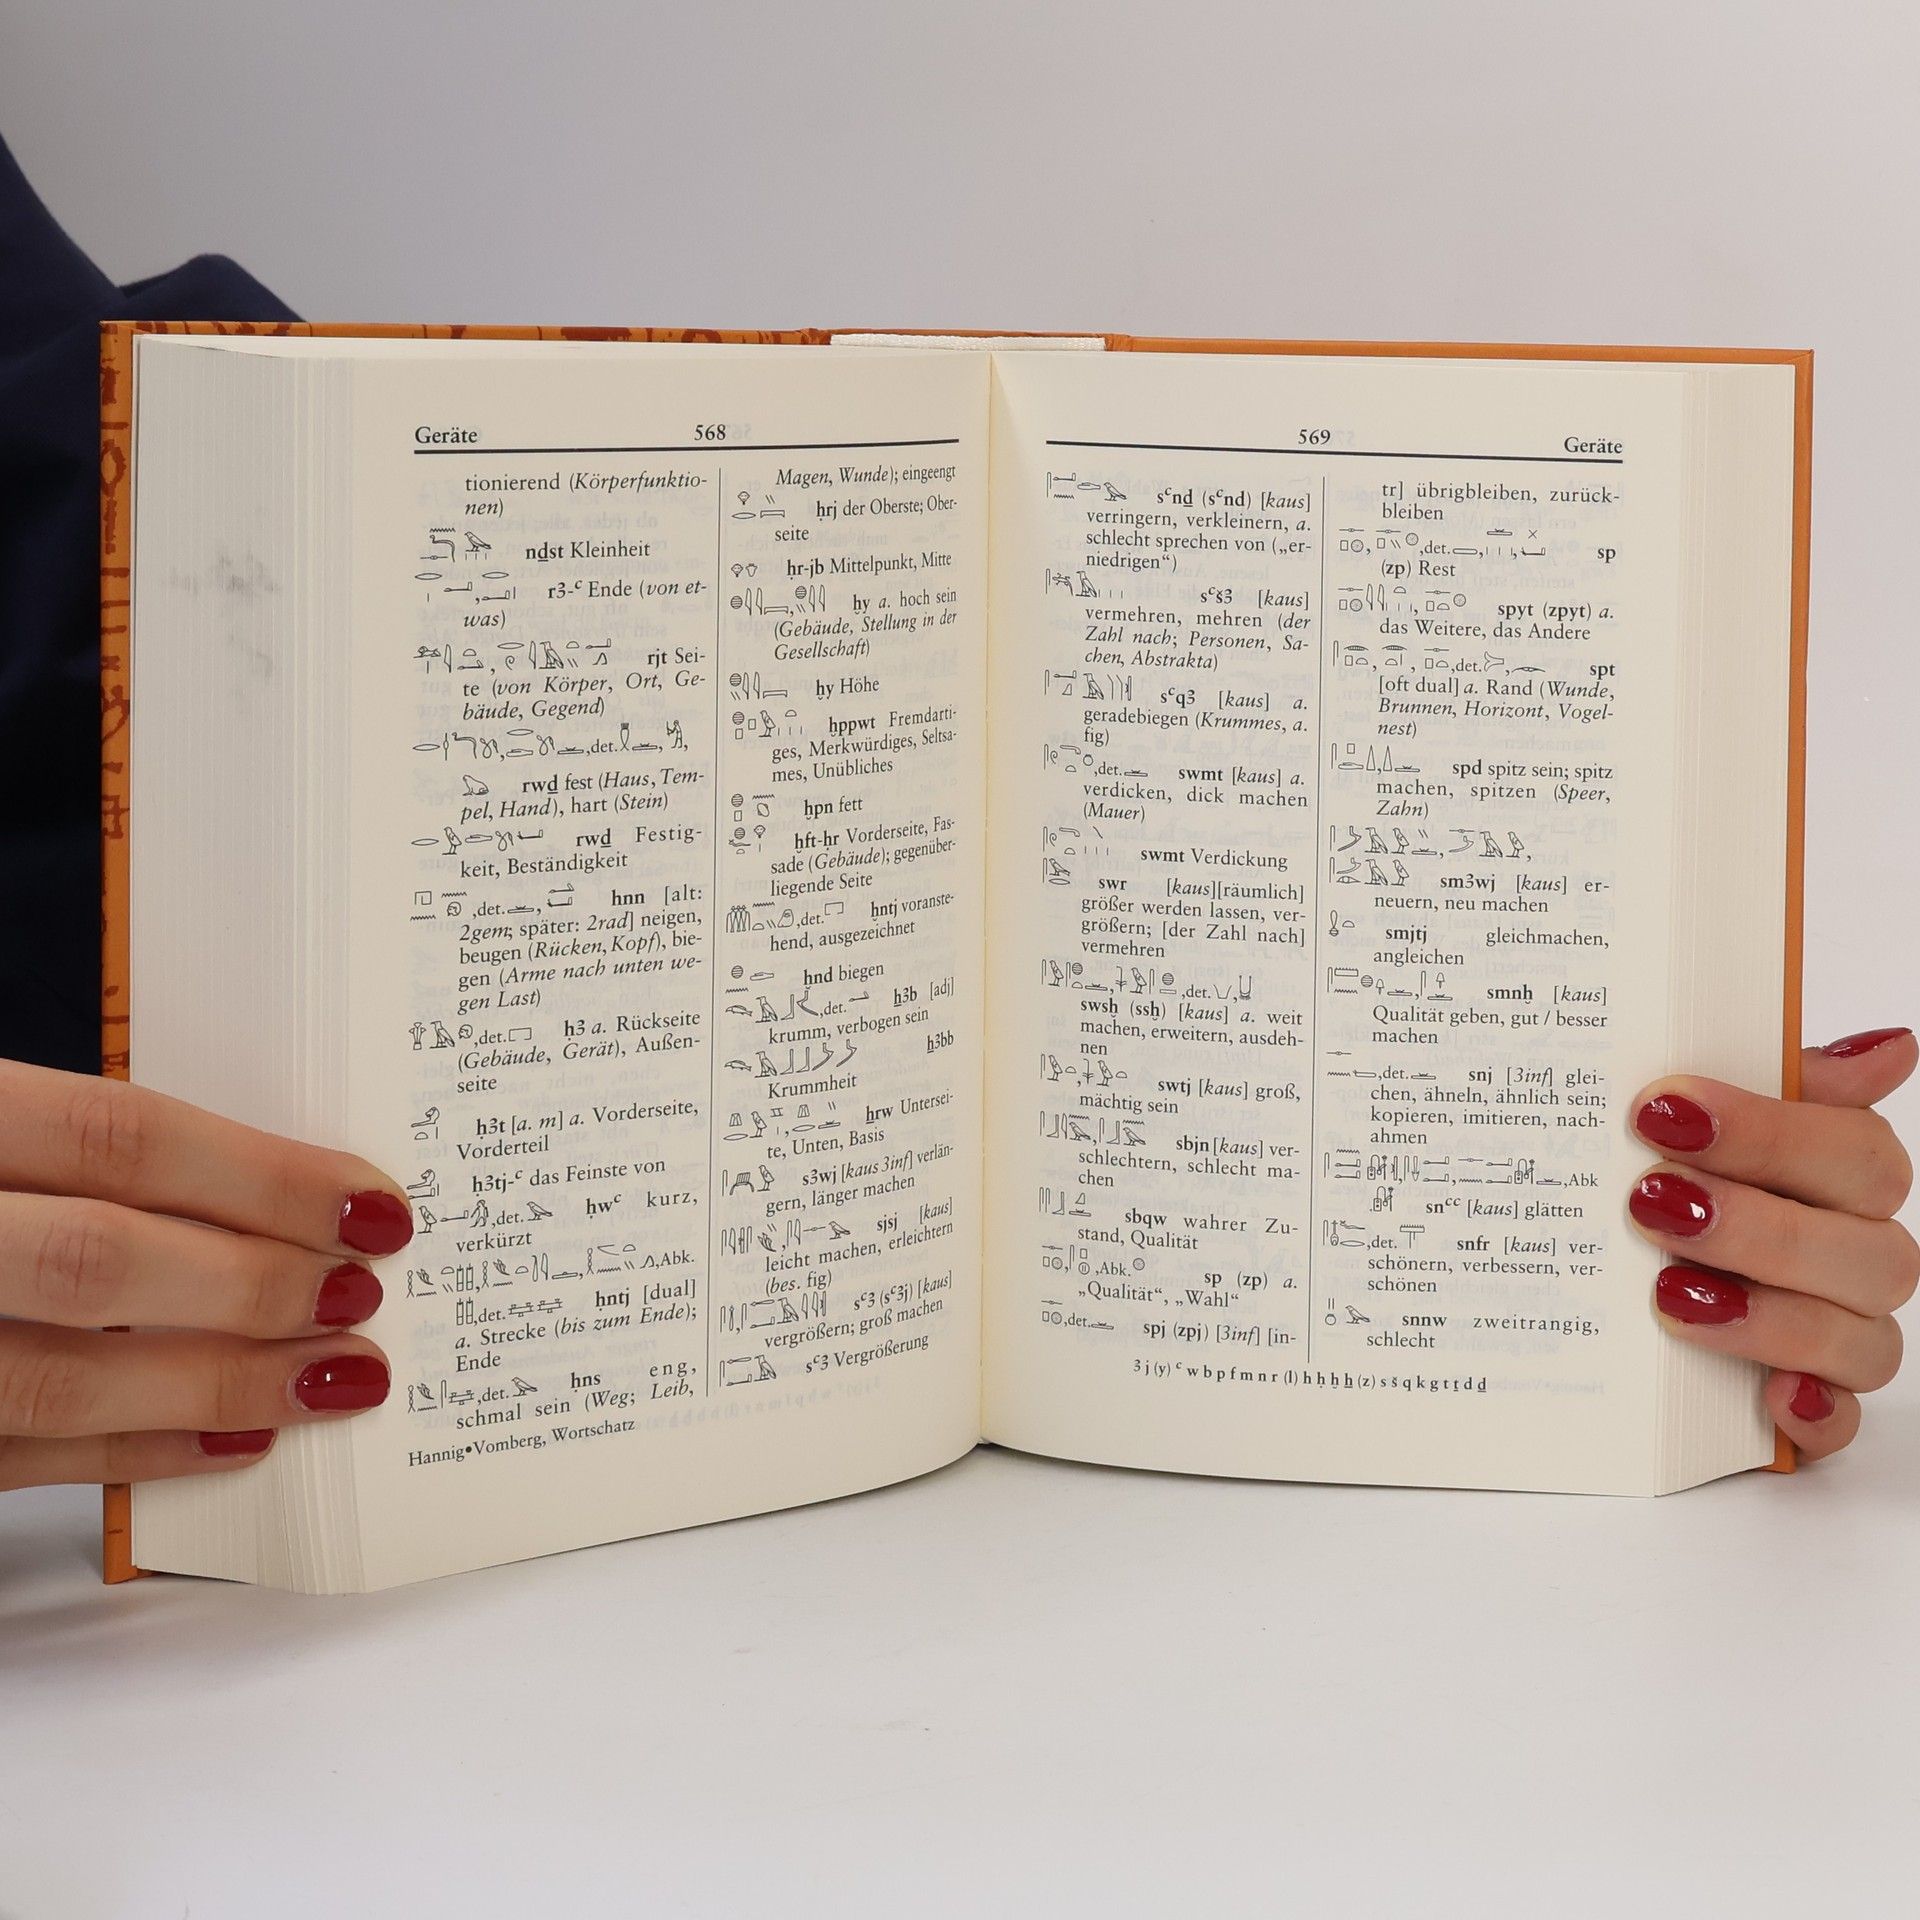 Geräte 568
tionierend (Körperfunktio-
nen)
nḏst Kleinheit
r3-ᶜ Ende (von et-
was)
rjt Sei-
te (von Körper, Ort, Ge-
bäude, Gegend)
,det.
rwḏ fest (Haus, Tem-
pel, Hand), hart (Stein)
rwḏ Festig-
keit, Beständigkeit
,det. hnn [alt:
2gem; später: 2rad] neigen,
beugen (Rücken, Kopf), bie-
gen (Arme nach unten we-
gen Last)
,det. ḥ3 a. Rückseite
(Gebäude, Gerät), Außen-
seite
ḥ3t [a. m] a. Vorderseite,
Vorderteil
ḥ3tj-ᶜ das Feinste von
,det. ḥwᶜ kurz,
verkürzt
,Abk.
,det. ḥntj [dual]
a. Strecke (bis zum Ende);
Ende
,det. ḥns eng,
schmal sein (Weg; Leib,
Hannig•Vomberg, Wortschatz
Magen, Wunde); eingeengt
ḥrj der Oberste; Ober-
seite
ḥr-jb Mittelpunkt, Mitte
ḫy a. hoch sein
(Gebäude, Stellung in der
Gesellschaft)
ḫy Höhe
ḫppwt Fremdarti-
ges, Merkwürdiges, Seltsa-
mes, Unübliches
ḫpn fett
ḫft-ḥr Vorderseite, Fas-
sade (Gebäude); gegenüber-
liegende Seite
,det. ḫntj voranste-
hend, ausgezeichnet
ḫnd biegen
,det. ẖ3b [adj]
krumm, verbogen sein
ẖ3bb
Krummheit
ẖrw Untersei-
te, Unten, Basis
s3wj [kaus 3inf] verlän-
gern, länger machen
sjsj [kaus]
leicht machen, erleichtern
(bes. fig)
sᶜ3 (sᶜ3j) [kaus]
vergrößern; groß machen
sᶜ3 Vergrößerung
569 Geräte
sᶜnḏ (sᶜnd) [kaus]
verringern, verkleinern, a.
schlecht sprechen von („er-
niedrigen“)
sᶜš3 [kaus]
vermehren, mehren (der
Zahl nach; Personen, Sa-
chen, Abstrakta)
sᶜq3 [kaus] a.
geradebiegen (Krummes, a.
fig)
,det. swmt [kaus] a.
verdicken, dick machen
(Mauer)
swmt Verdickung
swr [kaus][räumlich]
größer werden lassen, ver-
größern; [der Zahl nach]
vermehren
,det.
swsḫ (ssḫ) [kaus] a. weit
machen, erweitern, ausdeh-
nen
swtj [kaus] groß,
mächtig sein
sbjn [kaus] ver-
schlechtern, schlecht ma-
chen
sbqw wahrer Zu-
stand, Qualität
,Abk. sp (zp) a.
„Qualität“, „Wahl“
,det. spj (zpj) [3inf] [in-
tr] übrigbleiben, zurück-
bleiben
,det. sp
(zp) Rest
spyt (zpyt) a.
das Weitere, das Andere
,det. spt
[oft dual] a. Rand (Wunde,
Brunnen, Horizont, Vogel-
nest)
spd spitz sein; spitz
machen, spitzen (Speer,
Zahn)
sm3wj [kaus] er-
neuern, neu machen
smjtj gleichmachen,
angleichen
smnḫ [kaus]
Qualität geben, gut / besser
machen
,det. snj [3inf] glei-
chen, ähneln, ähnlich sein;
kopieren, imitieren, nach-
ahmen
,Abk
snᶜᶜ [kaus] glätten
,det. snfr [kaus] ver-
schönern, verbessern, ver-
schönen
snnw zweitrangig,
schlecht
3 j (y) ᶜ w b p f m n r (l) h ḥ ḫ ẖ (z) s š q k g t ṯ d ḏ